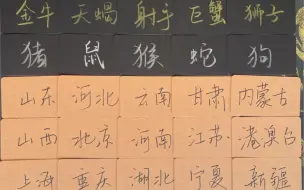 金牛 天蝎 射手 巨蟹 狮子
猪 鼠 猴 蛇 狗
山东 河北 云南 甘肃 内蒙古
山西 北京 河南 江苏 港澳台
上海 重庆 湖北 宁夏 新疆